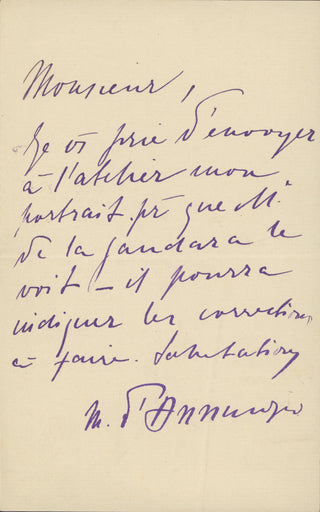 Monsieur,
Je vs prie d'envoyer
à l'atelier mon
portrait pr que Mr
de la Gandara le
voit — il pourra
indiquer les corrections
à faire. Salutations
M. d'Annunzio